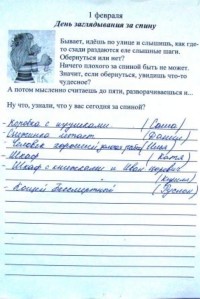 1 февраля
День заглядывания за спину
Бывает, идёшь по улице и слышишь, как где-
то сзади раздаются еле слышные шаги.
Обернуться или нет?
Ничего плохого за спиной быть не может.
Значит, если обернуться, увидишь что-то
чудесное?
А потом мысленно считаешь до пяти, разворачиваешься и...
Ну что, узнали, что у вас сегодня за спиной?
- Коробка с игрушками (Саша)
летает
- Человек хороший (Илья)
- Шкаф (Катя)
- Шкаф с книжками и Иван
- Кощей Бессмертный (Руслан)